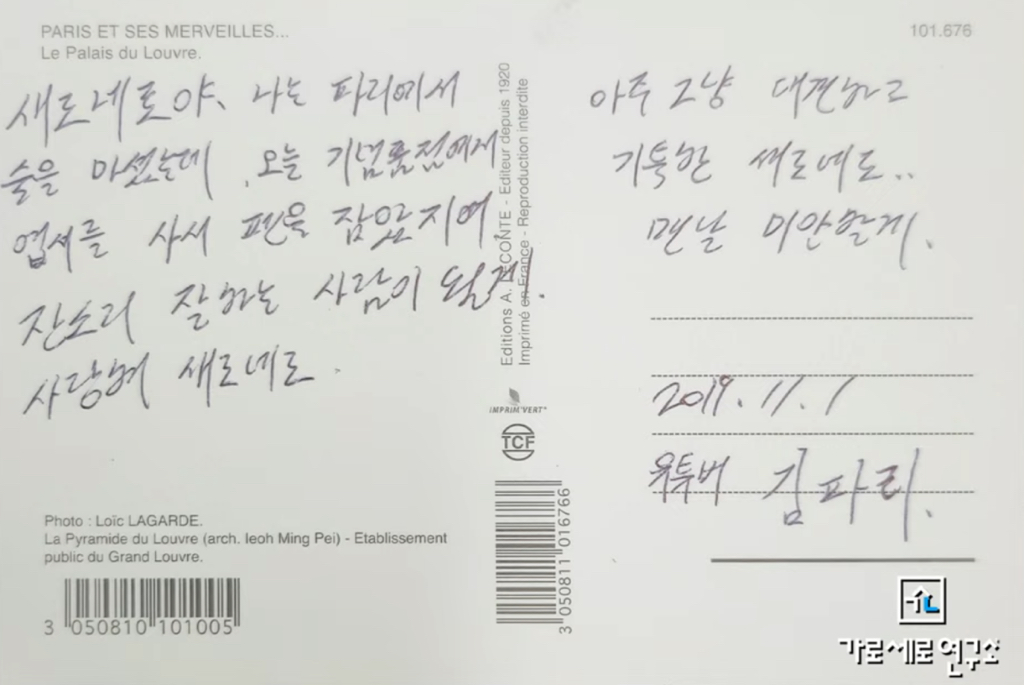 PARIS ET SES MERVEILLES...
Le Palais du Louvre.
101.676
새로네로야, 나는 파리에서
술을 마셨는데, 오늘 기념품점에서
엽서를 사서 펜을 잡았지여.
잔소리 잘하는 사람이 될게!.
사랑해 새로네로.
아주 그냥 대견하고
기특한 새로네로..
맨날 미안할게.
2019.11.1
유투버 김파리.
Editions A. LECONTE - Editeur depuis 1920
Imprimé en France - Reproduction interdite
IMPRIM'VERT®
TCF
3 050811 016766
Photo : Loïc LAGARDE.
La Pyramide du Louvre (arch. Ieoh Ming Pei) - Etablissement
public du Grand Louvre.
3 050810 101005
가로세로연구소